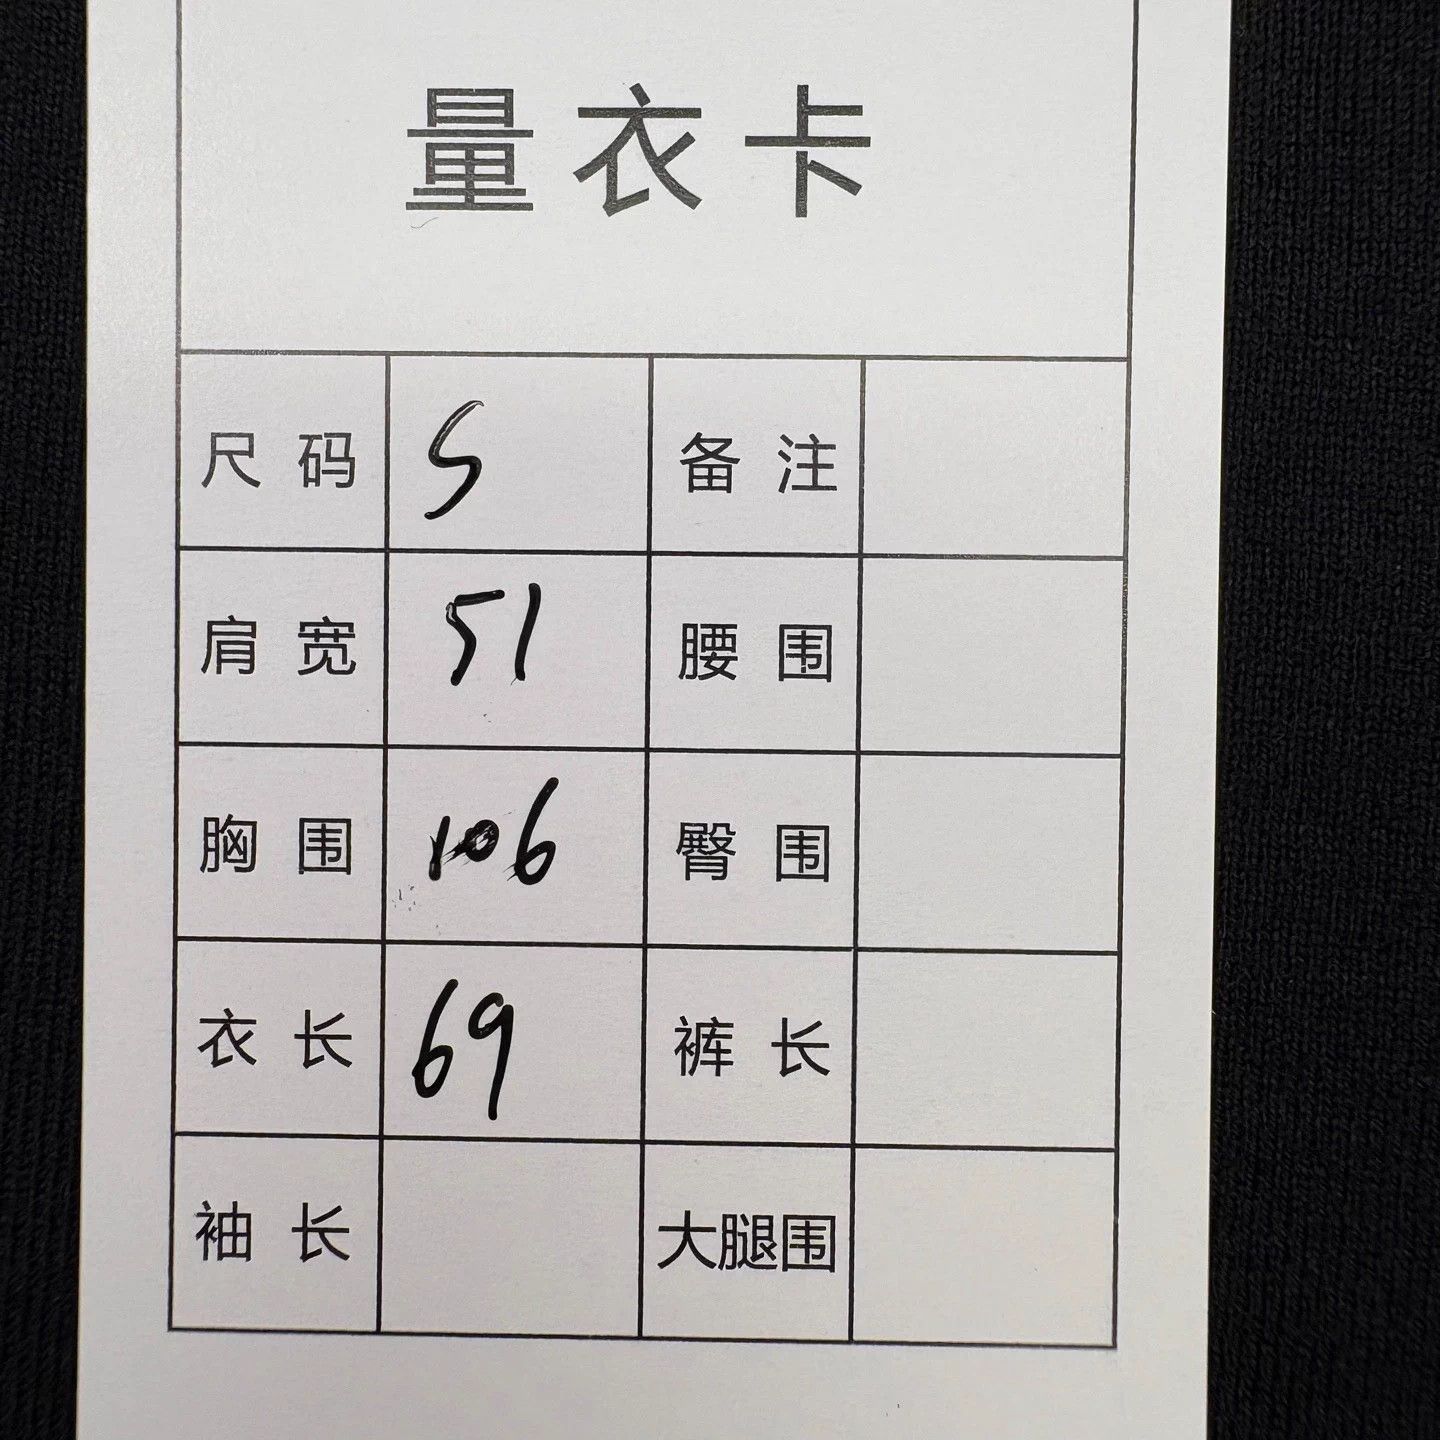 量衣卡
尺码 S 备注
肩宽 51 腰围
胸围 106 臀围
衣长 69 裤长
袖长 大腿围